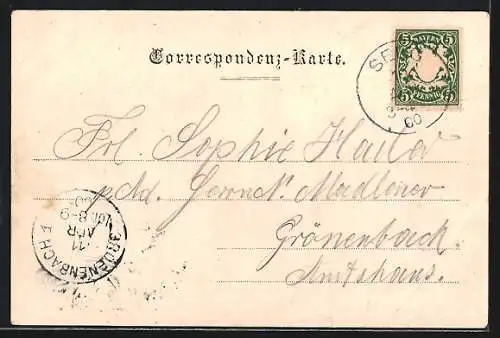 Correspondenz-Karte.
BAYERN
5 5
PFENNIG
5 5
00
Frl. Sophie Hailer
p. Ad. Herrn N. Madlener
Grönenbach
Amtshaus.
GROENENBACH
11
APR
Vor. 8-9
00